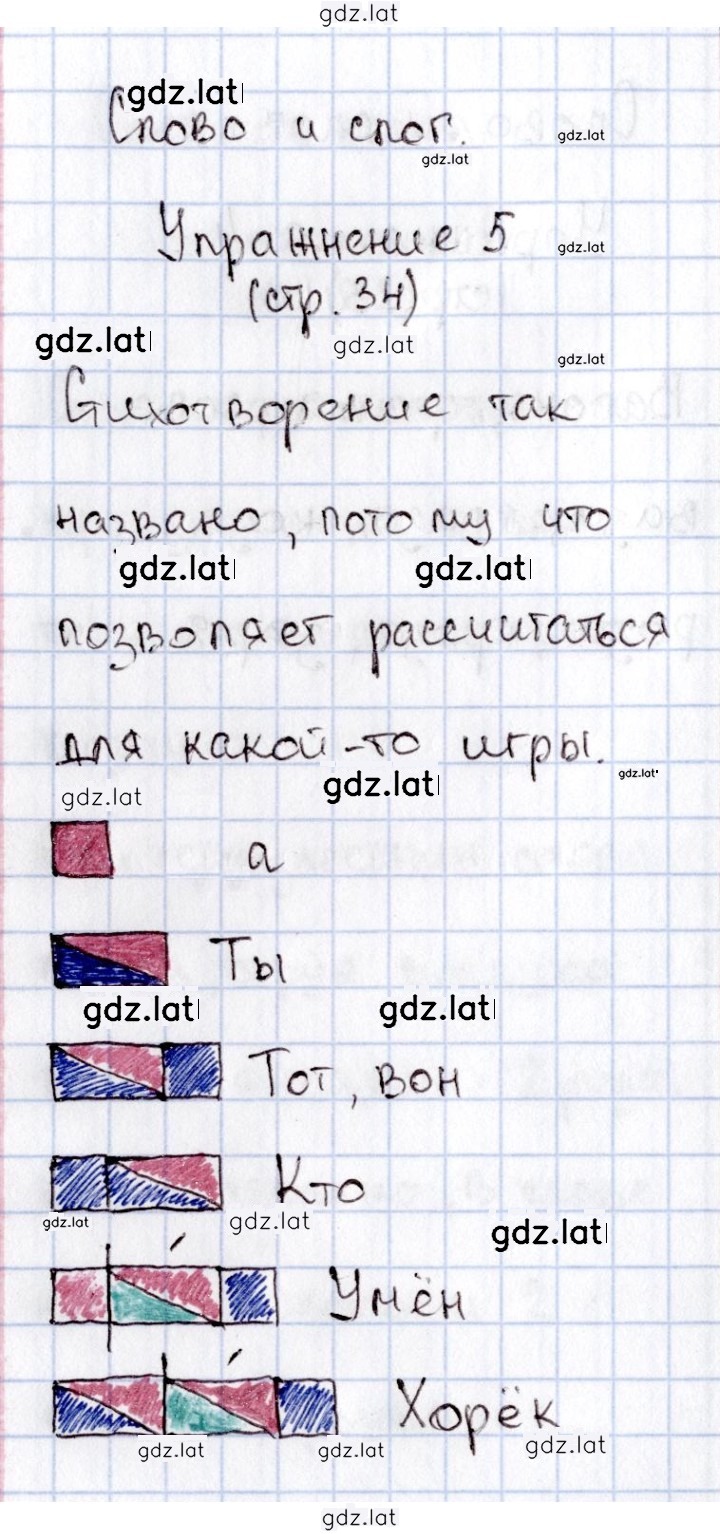 gdz.lat
gdz.lat
Слово и слог.
gdz.lat
gdz.lat
Упражнение 5
gdz.lat
(стр. 34)
gdz.lat
gdz.lat
gdz.lat
Стихотворение так
названо, потому что
gdz.lat
gdz.lat
позволяет рассчитаться
для какой-то игры.
gdz.lat
gdz.lat
gdz.lat
а
Ты
gdz.lat
gdz.lat
Тот, вон
Кто
gdz.lat
gdz.lat
gdz.lat
Умён
Хорёк
gdz.lat
gdz.lat
gdz.lat
gdz.lat